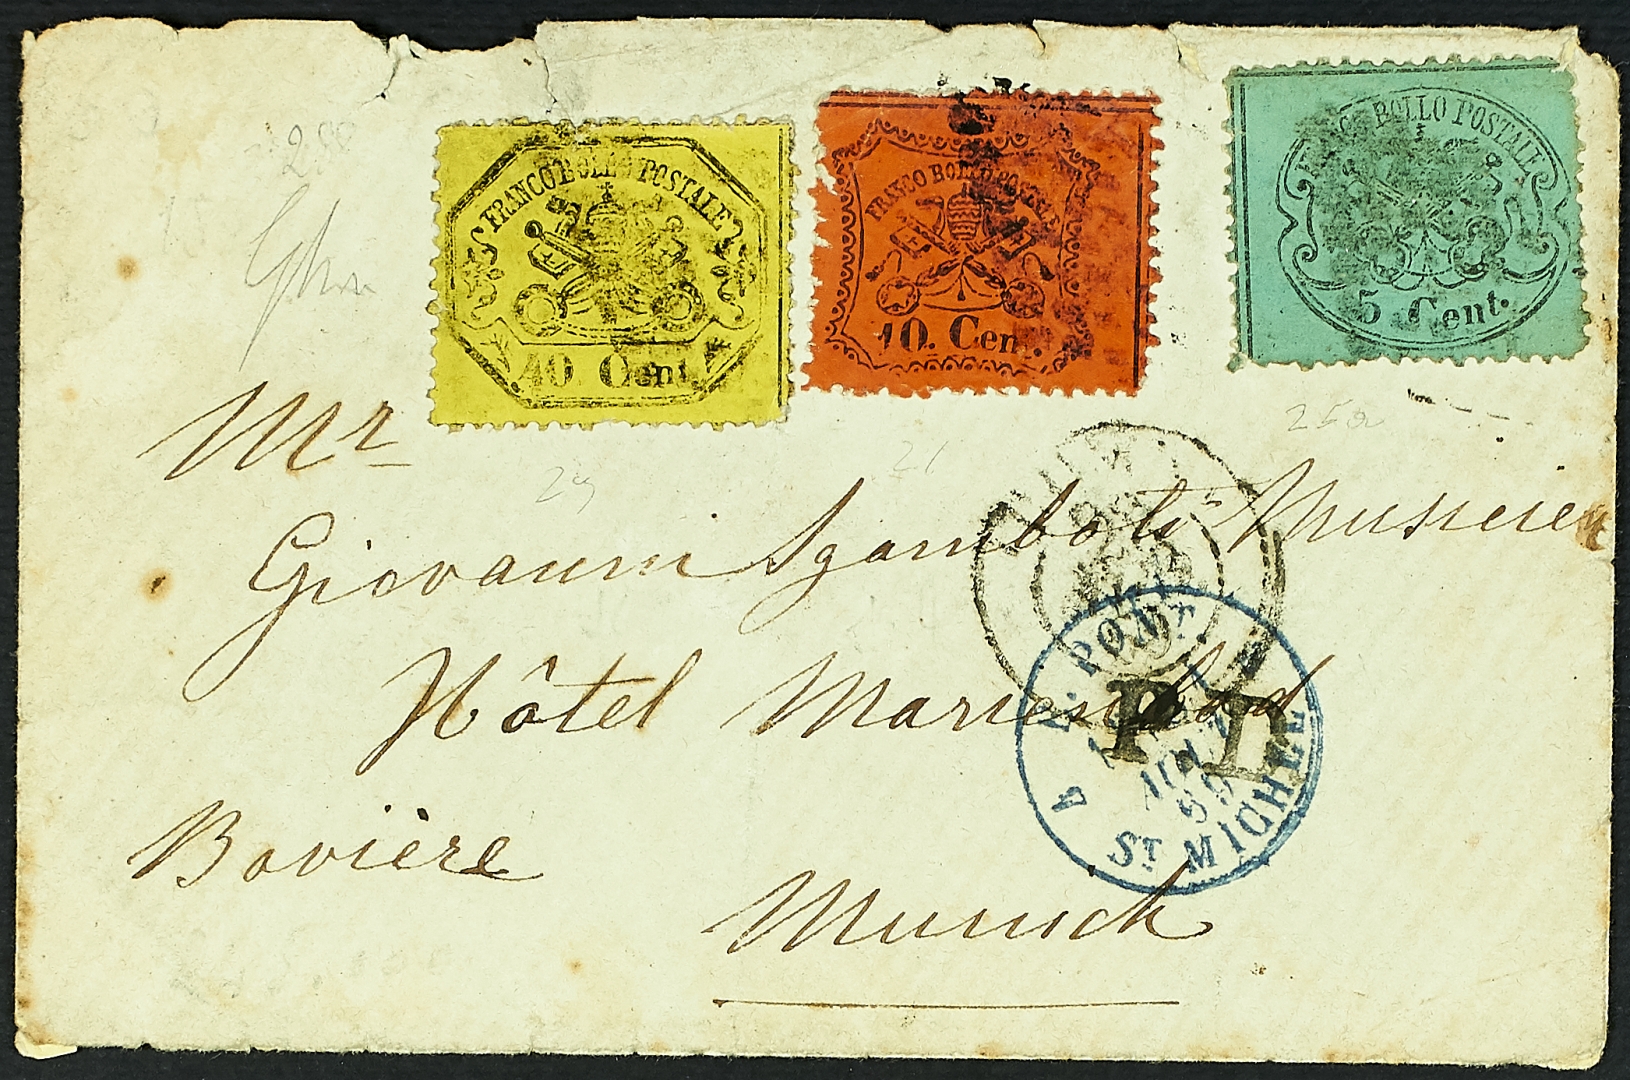 FRANCO BOLLO POSTALE
40 Cent
FRANCO BOLLO POSTALE
10. Cent.
FRANCO BOLLO POSTALE
5 Cent.
29
21
25a
Mr
Giovanni Sgambati Musicien
Hôtel Marienbad
Bavière
Munich
E. PONT
ST MICHEL
JUIN
69
P D